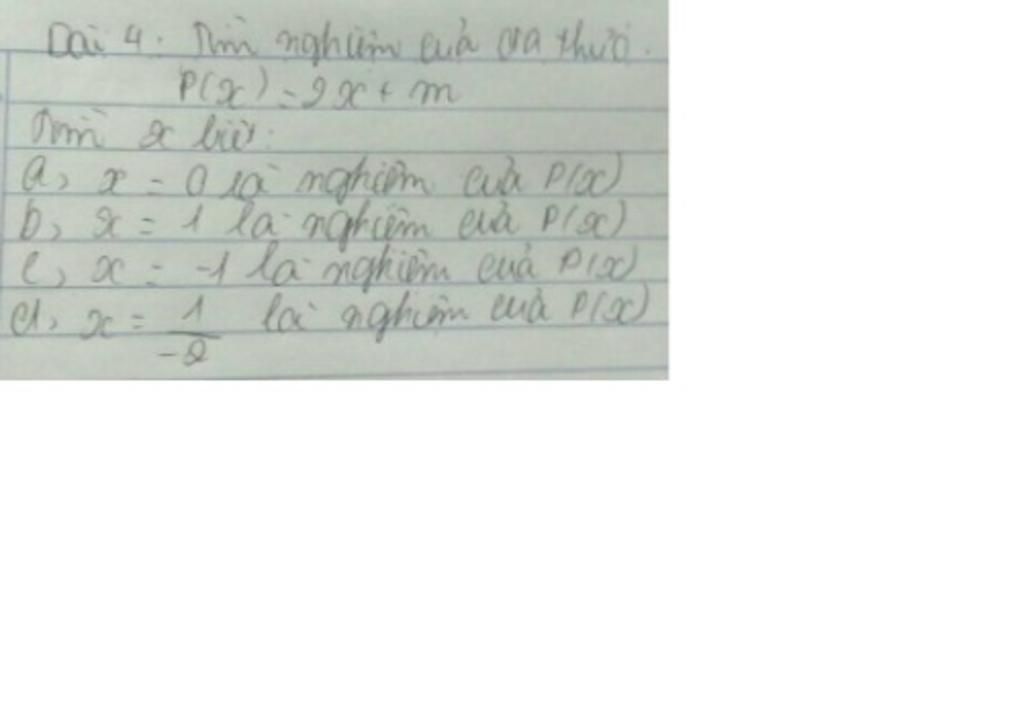 Bài 4: Tìm nghiệm của đa thức.
P(x) = 2x + m
Tìm x biết:
a, x = 0 là nghiệm của P(x)
b, x = 1 là nghiệm của P(x)
c, x = -1 là nghiệm của P(x)
d, x = 1/-2 là nghiệm của P(x)